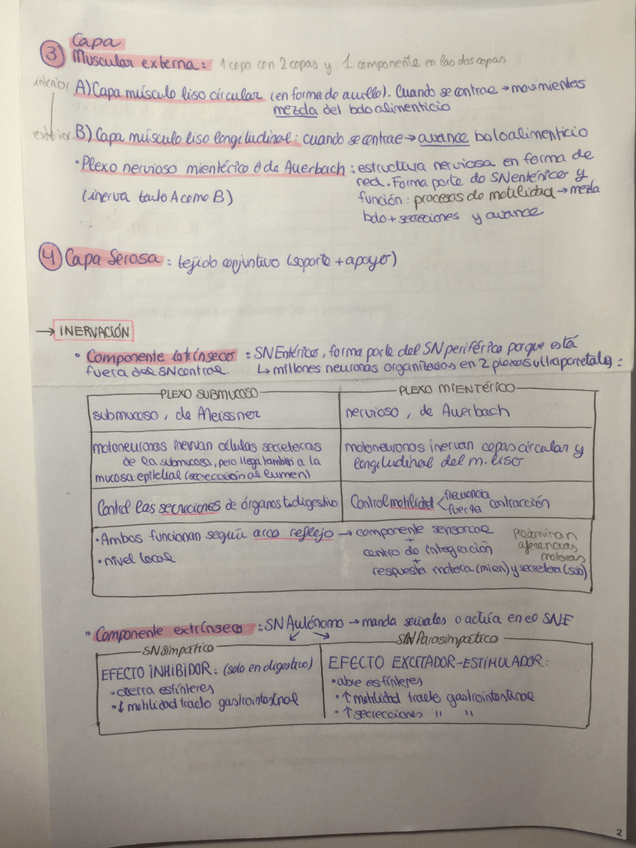 ③ Capa
Muscular externa: 1 capa con 2 capas y 1 componente en las dos capas
interior A) Capa músculo liso circular (en forma de anillo). Cuando se contrae → movimientos
mezcla del bolo alimenticio
exterior B) Capa músculo liso longitudinal: cuando se contrae → avance bolo alimenticio
• Plexo nervioso mientérico ó de Auerbach: estructura nerviosa en forma de
red. Forma parte do SN entérico y
(inerva tanto A como B) función: procesos de motilidad → mezla
bolo + secreciones y avance
④ Capa Serosa: tejido conjuntivo (soporte + apoyo)
→ INERVACIÓN
• Componente intrínseco: SN Entérico, forma parte del SN periférico porque está
fuera del SN central ↳ millones neuronas organizadas en 2 plexos ultraparietales:
PLEXO SUBMUCOSO PLEXO MIENTÉRICO
submucoso, de Meissner nervioso, de Auerbach
motoneuronas inervan células secretoras motoneuronas inervan capas circular y
de la submucosa, pero llega también a la longitudinal del m. liso
mucosa epitelial (secreción al lumen)
Control las secreciones de órganos t. digestivo Control motilidad < frecuencia fuerza contracción
• Ambos funcionan según arco reflejo → componente sensorial Predominan
• nivel local centro de integración aferencias
respuesta motora (mien) y secretora (sub) motoras
• Componente extrínseco: SN Autónomo → manda señales o actúa en el SNE
SN Simpático SN Parasimpático
EFECTO INHIBIDOR: (solo en digestivo) EFECTO EXCITADOR-ESTIMULADOR:
• cierra esfínteres • abre esfínteres
• ↓ motilidad tracto gastrointestinal • ↑ motilidad tracto gastrointestinal
• ↑ secrecciones " "
2